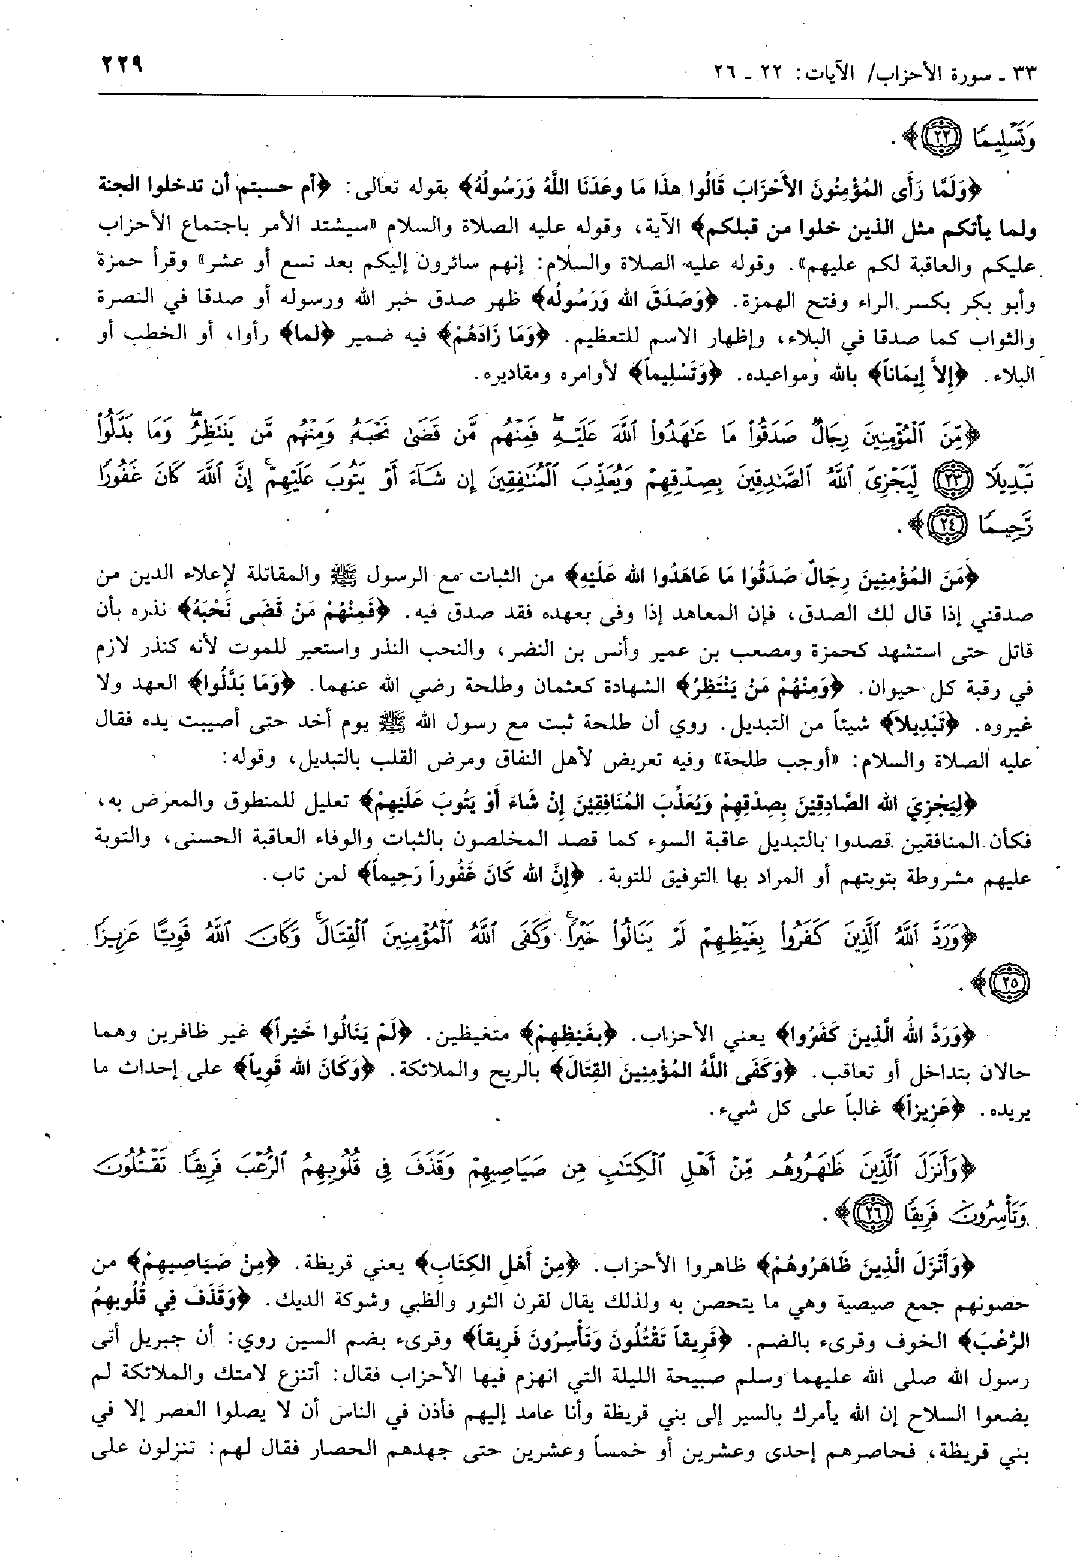 ٣٣ ـ سورة الأحزاب/ الآيات: ٢٢ ـ ٢٦ ٢٢٩
وَتَسْلِيمًا ﴿٢٢﴾﴾.
﴿وَلَمَّا رَأَى المُؤْمِنُونَ الأَحْزَابَ قَالُوا هذَا مَا وعَدَنَا اللَّهُ وَرَسُولُهُ﴾ بقوله تعالى: ﴿أم حسبتم أن تدخلوا الجنة
ولما يأتكم مثل الذين خلوا من قبلكم﴾ الآية، وقوله عليه الصلاة والسلام «سيشتد الأمر باجتماع الأحزاب
عليكم والعاقبة لكم عليهم». وقوله عليه الصلاة والسلام: إنهم سائرون إليكم بعد تسع أو عشر» وقرأ حمزة
وأبو بكر بكسر الراء وفتح الهمزة. ﴿وَصَدَقَ الله وَرَسُولُه﴾ ظهر صدق خبر الله ورسوله أو صدقا في النصرة
والثواب كما صدقا في البلاء، وإظهار الاسم للتعظيم. ﴿وَمَا زَادَهُمْ﴾ فيه ضمير ﴿لما﴾ رأوا، أو الخطب أو
البلاء. ﴿إِلاَّ إِيمَاناً﴾ بالله ومواعيده. ﴿وَتَسْلِيماً﴾ لأوامره ومقاديره.
﴿مِّنَ ٱلْمُؤْمِنِينَ رِجَالٌ صَدَقُواْ مَا عَٰهَدُواْ ٱللَّهَ عَلَيْهِ فَمِنْهُم مَّن قَضَىٰ نَحْبَهُ وَمِنْهُم مَّن يَنتَظِرُ وَمَا بَدَّلُواْ
تَبْدِيلًا ﴿٢٣﴾ لِّيَجْزِيَ ٱللَّهُ ٱلصَّٰدِقِينَ بِصِدْقِهِمْ وَيُعَذِّبَ ٱلْمُنَٰفِقِينَ إِن شَآءَ أَوْ يَتُوبَ عَلَيْهِمْ إِنَّ ٱللَّهَ كَانَ غَفُورًا
رَّحِيمًا ﴿٢٤﴾﴾.
﴿مِنَ المُؤْمِنِينَ رِجَالٌ صَدَقُوا مَا عَاهَدُوا الله عَلَيْهِ﴾ من الثبات مع الرسول ﷺ والمقاتلة لإعلاء الدين من
صدقني إذا قال لك الصدق، فإن المعاهد إذا وفى بعهده فقد صدق فيه. ﴿فَمِنْهُمْ مَنْ قَضَى نَحْبَهُ﴾ نذره بأن
قاتل حتى استشهد كحمزة ومصعب بن عمير وأنس بن النضر، والنحب النذر واستعير للموت لأنه كنذر لازم
في رقبة كل حيوان. ﴿وَمِنْهُمْ مَنْ يَنْتَظِرُ﴾ الشهادة كعثمان وطلحة رضي الله عنهما. ﴿وَمَا بَدَّلُوا﴾ العهد ولا
غيروه. ﴿تَبْدِيلاً﴾ شيئاً من التبديل. روي أن طلحة ثبت مع رسول الله ﷺ يوم أحد حتى أصيبت يده فقال
عليه الصلاة والسلام: «أوجب طلحة» وفيه تعريض لأهل النفاق ومرض القلب بالتبديل، وقوله:
﴿لِيَجْزِيَ الله الصَّادِقِينَ بِصِدْقِهِمْ وَيُعَذِّبَ المُنَافِقِينَ إِنْ شَاءَ أَوْ يَتُوبَ عَلَيْهِمْ﴾ تعليل للمنطوق والمعرض به،
فكأن المنافقين قصدوا بالتبديل عاقبة السوء كما قصد المخلصون بالثبات والوفاء العاقبة الحسنى، والتوبة
عليهم مشروطة بتوبتهم أو المراد بها التوفيق للتوبة. ﴿إِنَّ الله كَانَ غَفُوراً رَحِيماً﴾ لمن تاب.
﴿وَرَدَّ ٱللَّهُ ٱلَّذِينَ كَفَرُواْ بِغَيْظِهِمْ لَمْ يَنَالُواْ خَيْرًا وَكَفَى ٱللَّهُ ٱلْمُؤْمِنِينَ ٱلْقِتَالَ وَكَانَ ٱللَّهُ قَوِيًّا عَزِيزًا
﴿٢٥﴾﴾.
﴿وَرَدَّ اللهُ الَّذِينَ كَفَرُوا﴾ يعني الأحزاب. ﴿بِغَيْظِهِمْ﴾ متغيظين. ﴿لَمْ يَنَالُوا خَيْراً﴾ غير ظافرين وهما
حالان بتداخل أو تعاقب. ﴿وَكَفَى اللَّهُ المُؤْمِنِينَ القِتَالَ﴾ بالريح والملائكة. ﴿وَكَانَ الله قَوِياً﴾ على إحداث ما
يريده. ﴿عَزِيزاً﴾ غالباً على كل شيء.
﴿وَأَنزَلَ ٱلَّذِينَ ظَٰهَرُوهُم مِّنْ أَهْلِ ٱلْكِتَٰبِ مِن صَيَاصِيهِمْ وَقَذَفَ فِي قُلُوبِهِمُ ٱلرُّعْبَ فَرِيقًا تَقْتُلُونَ
وَتَأْسِرُونَ فَرِيقًا ﴿٢٦﴾﴾.
﴿وَأَنْزَلَ الَّذِينَ ظَاهَرُوهُمْ﴾ ظاهروا الأحزاب. ﴿مِنْ أَهْلِ الكِتَابِ﴾ يعني قريظة. ﴿مِنْ صَيَاصِيهِمْ﴾ من
حصونهم جمع صيصية وهي ما يتحصن به ولذلك يقال لقرن الثور والظبي وشوكة الديك. ﴿وَقَذَفَ فِي قُلُوبِهِمُ
الرُّعْبَ﴾ الخوف وقرىء بالضم. ﴿فَرِيقاً تَقْتُلُونَ وَتَأْسِرُونَ فَرِيقاً﴾ وقرىء بضم السين روي: أن جبريل أتى
رسول الله صلى الله عليهما وسلم صبيحة الليلة التي انهزم فيها الأحزاب فقال: أتنزع لامتك والملائكة لم
يضعوا السلاح إن الله يأمرك بالسير إلى بني قريظة وأنا عامد إليهم فأذن في الناس أن لا يصلوا العصر إلا في
بني قريظة، فحاصرهم إحدى وعشرين أو خمساً وعشرين حتى جهدهم الحصار فقال لهم: تنزلون على